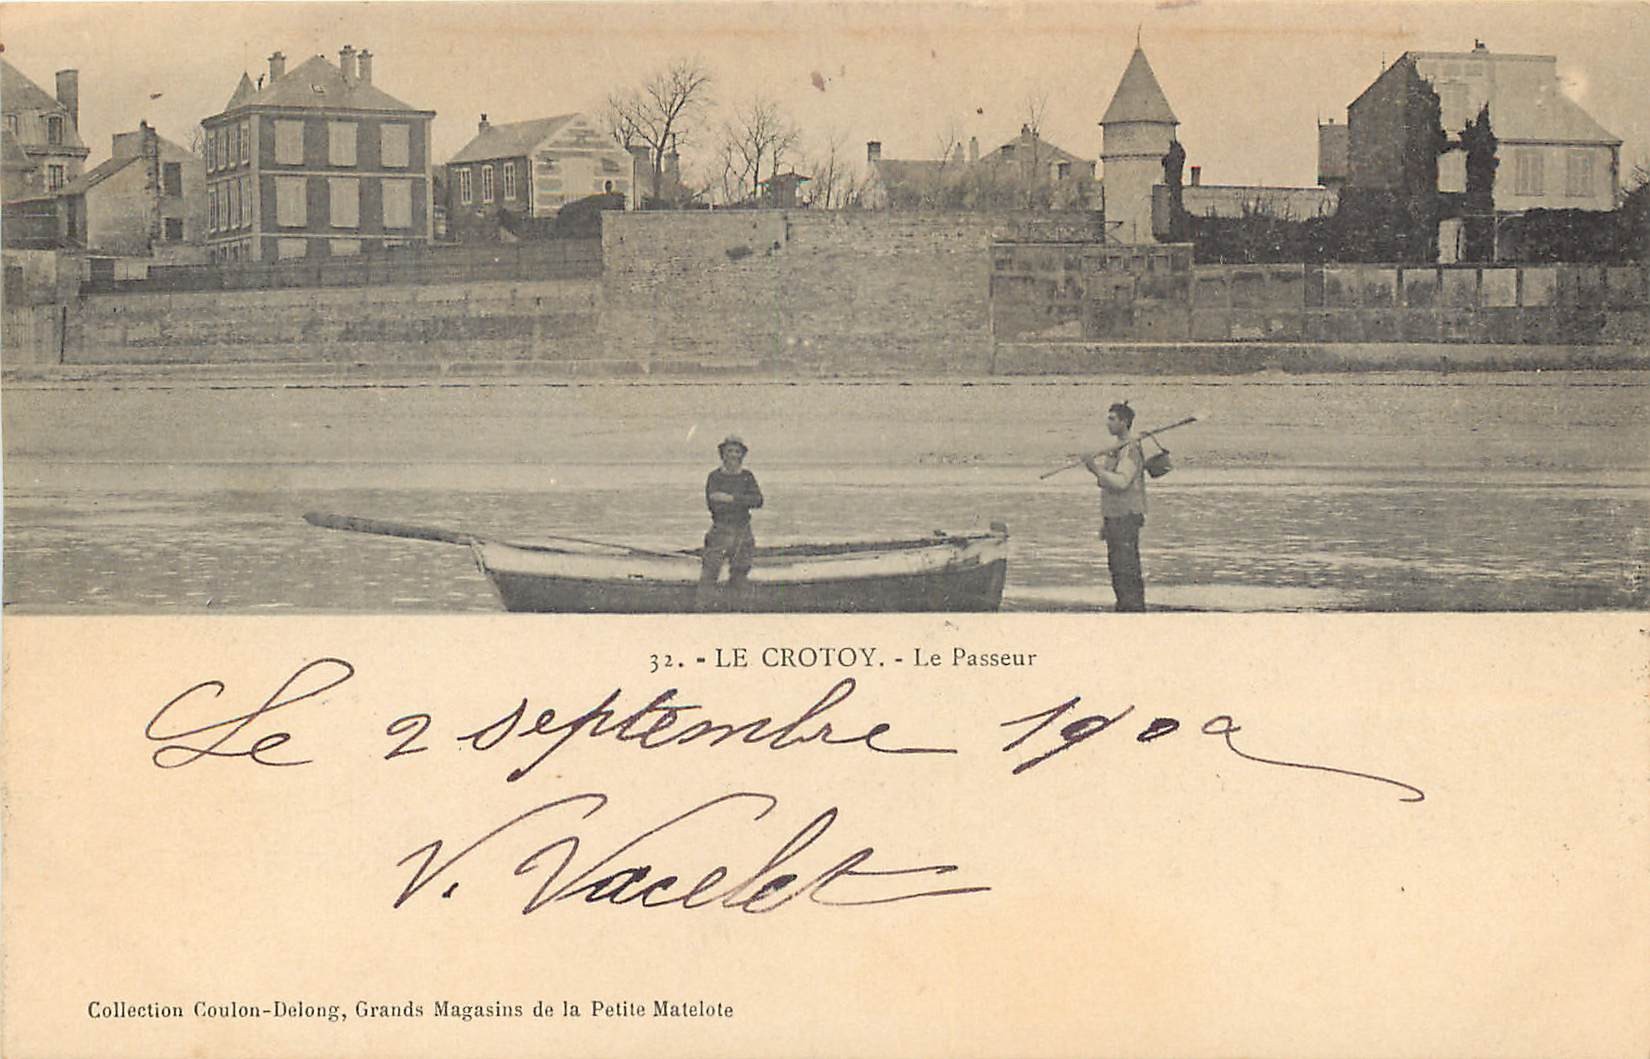 32. - LE CROTOY. - Le Passeur
Le 2 septembre 190
V. Vacelet
Collection Coulon-Delong, Grands Magasins de la Petite Matelote